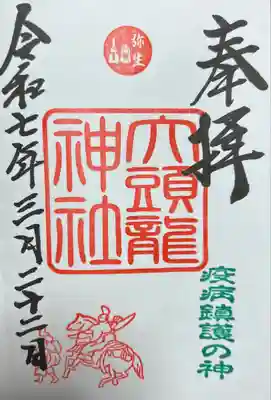 奉拝
疫病鎮護の神
弥生
大頭龍
神社
令和七年三月二十二日